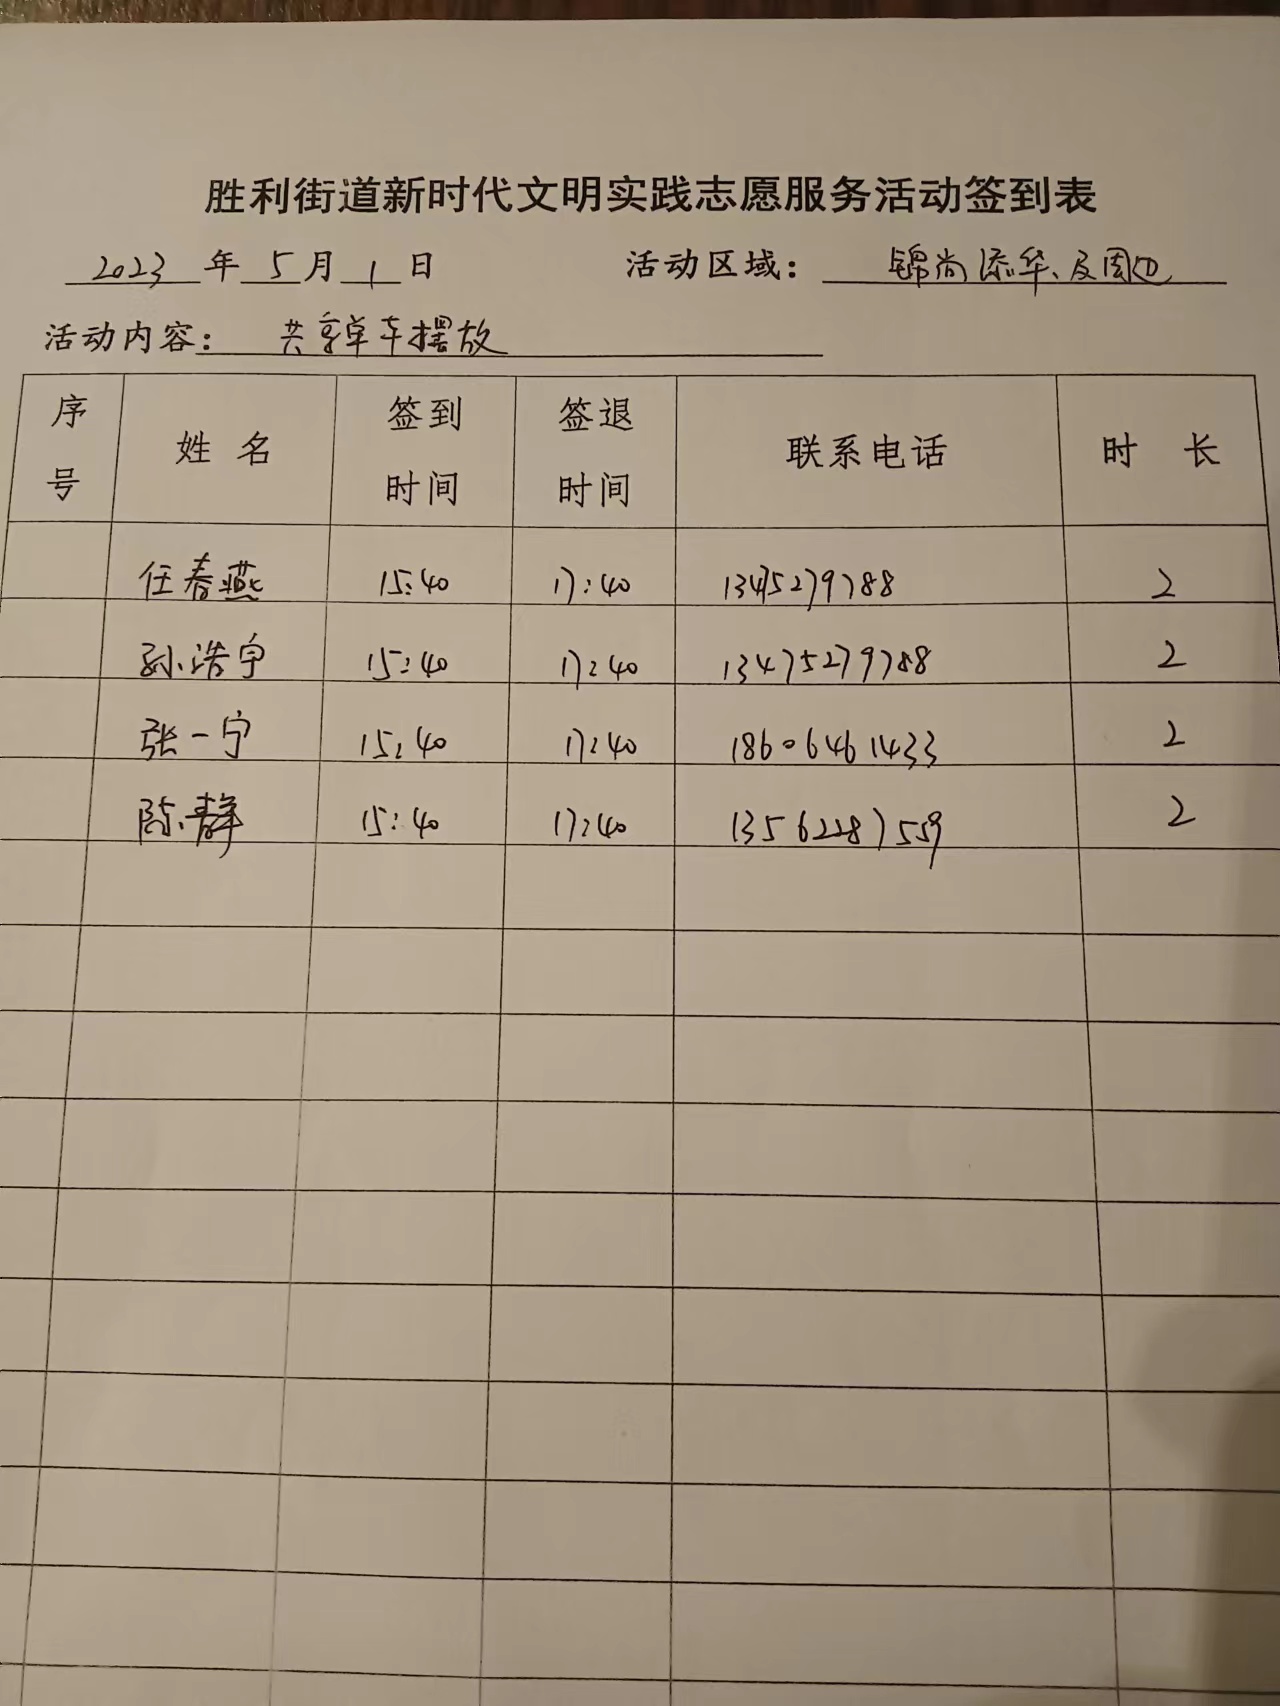 胜利街道新时代文明实践志愿服务活动签到表
2023 年 5 月 1 日 活动区域： 锦尚添华、及周边
活动内容： 共享单车摆放
序号 姓名 签到时间 签退时间 联系电话 时长
任春燕 15:40 17:40 13475279788 2
孙浩宇 15:40 17:40 13475279788 2
张一宁 15:40 17:40 18606461433 2
陈静 15:40 17:40 13562287559 2